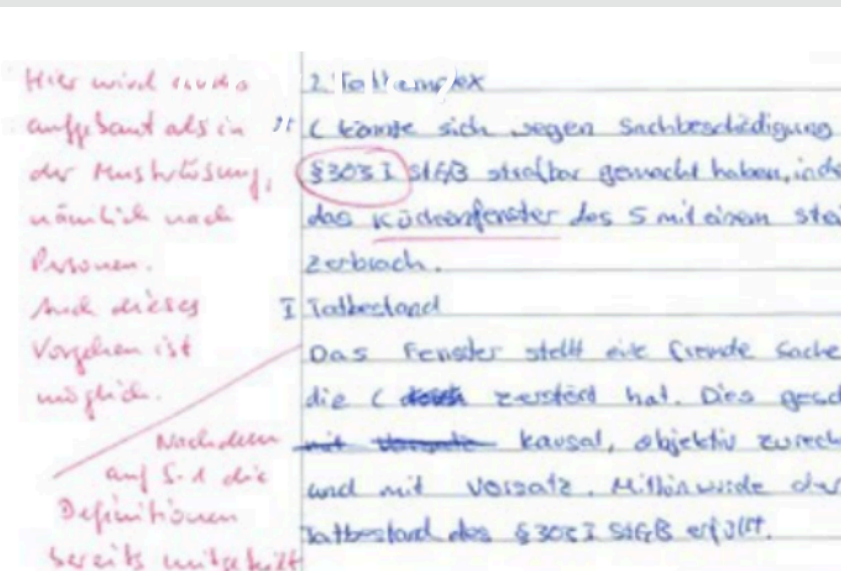 Hier wird anders
aufgebaut als in
der Musterlösung,
nämlich nach
Personen.
Auch dieses
Vorgehen ist
möglich.
Nachdem
auf S. 1 die
Definitionen
bereits mitgeteilt
2. Tatkomplex
C könnte sich wegen Sachbeschädigung
§303 I StGB strafbar gemacht haben, inde
das Küchenfenster des S mit einem stei
zerbrach.
I Tatbestand
Das Fenster stellt eine fremde Sache
die C zerstört hat. Dies gesc
kausal, objektiv zurech
und mit Vorsatz. Mithin wurde der
Tatbestand des §303 I StGB erfüllt.